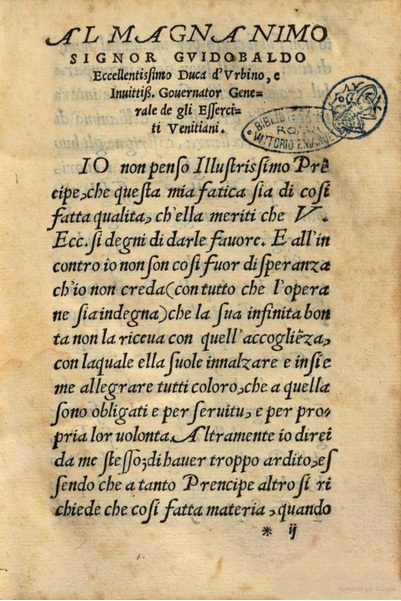 AL MAGNANIMO
SIGNOR GVIDOBALDO
Eccellentissimo Duca d'Vrbino, e
Inuittiß. Gouernator Gene-
rale de gli Esserci-
ti Venitiani.
BIBLIOTECA
ROMA
VITTORIO EMANUELE
IO non penso Illustrissimo Prē
cipe, che questa mia fatica sia di cosi
fatta qualita, ch'ella meriti che V.
Ecc. si degni di darle fauore. E all'in
contro io non son cosi fuor di speranza
ch'io non creda (con tutto che l'opera
ne sia indegna) che la sua infinita bon
ta non la riceua con quell'accogliēza,
con laquale ella suole innalzare e insie
me allegrare tutti coloro, che a quella
sono obligati e per seruitu, e per pro-
pria lor uolonta. Altramente io direi
da me stesso; di hauer troppo ardito, es
sendo che a tanto Prencipe altro si ri
chiede che cosi fatta materia, quando
* ij